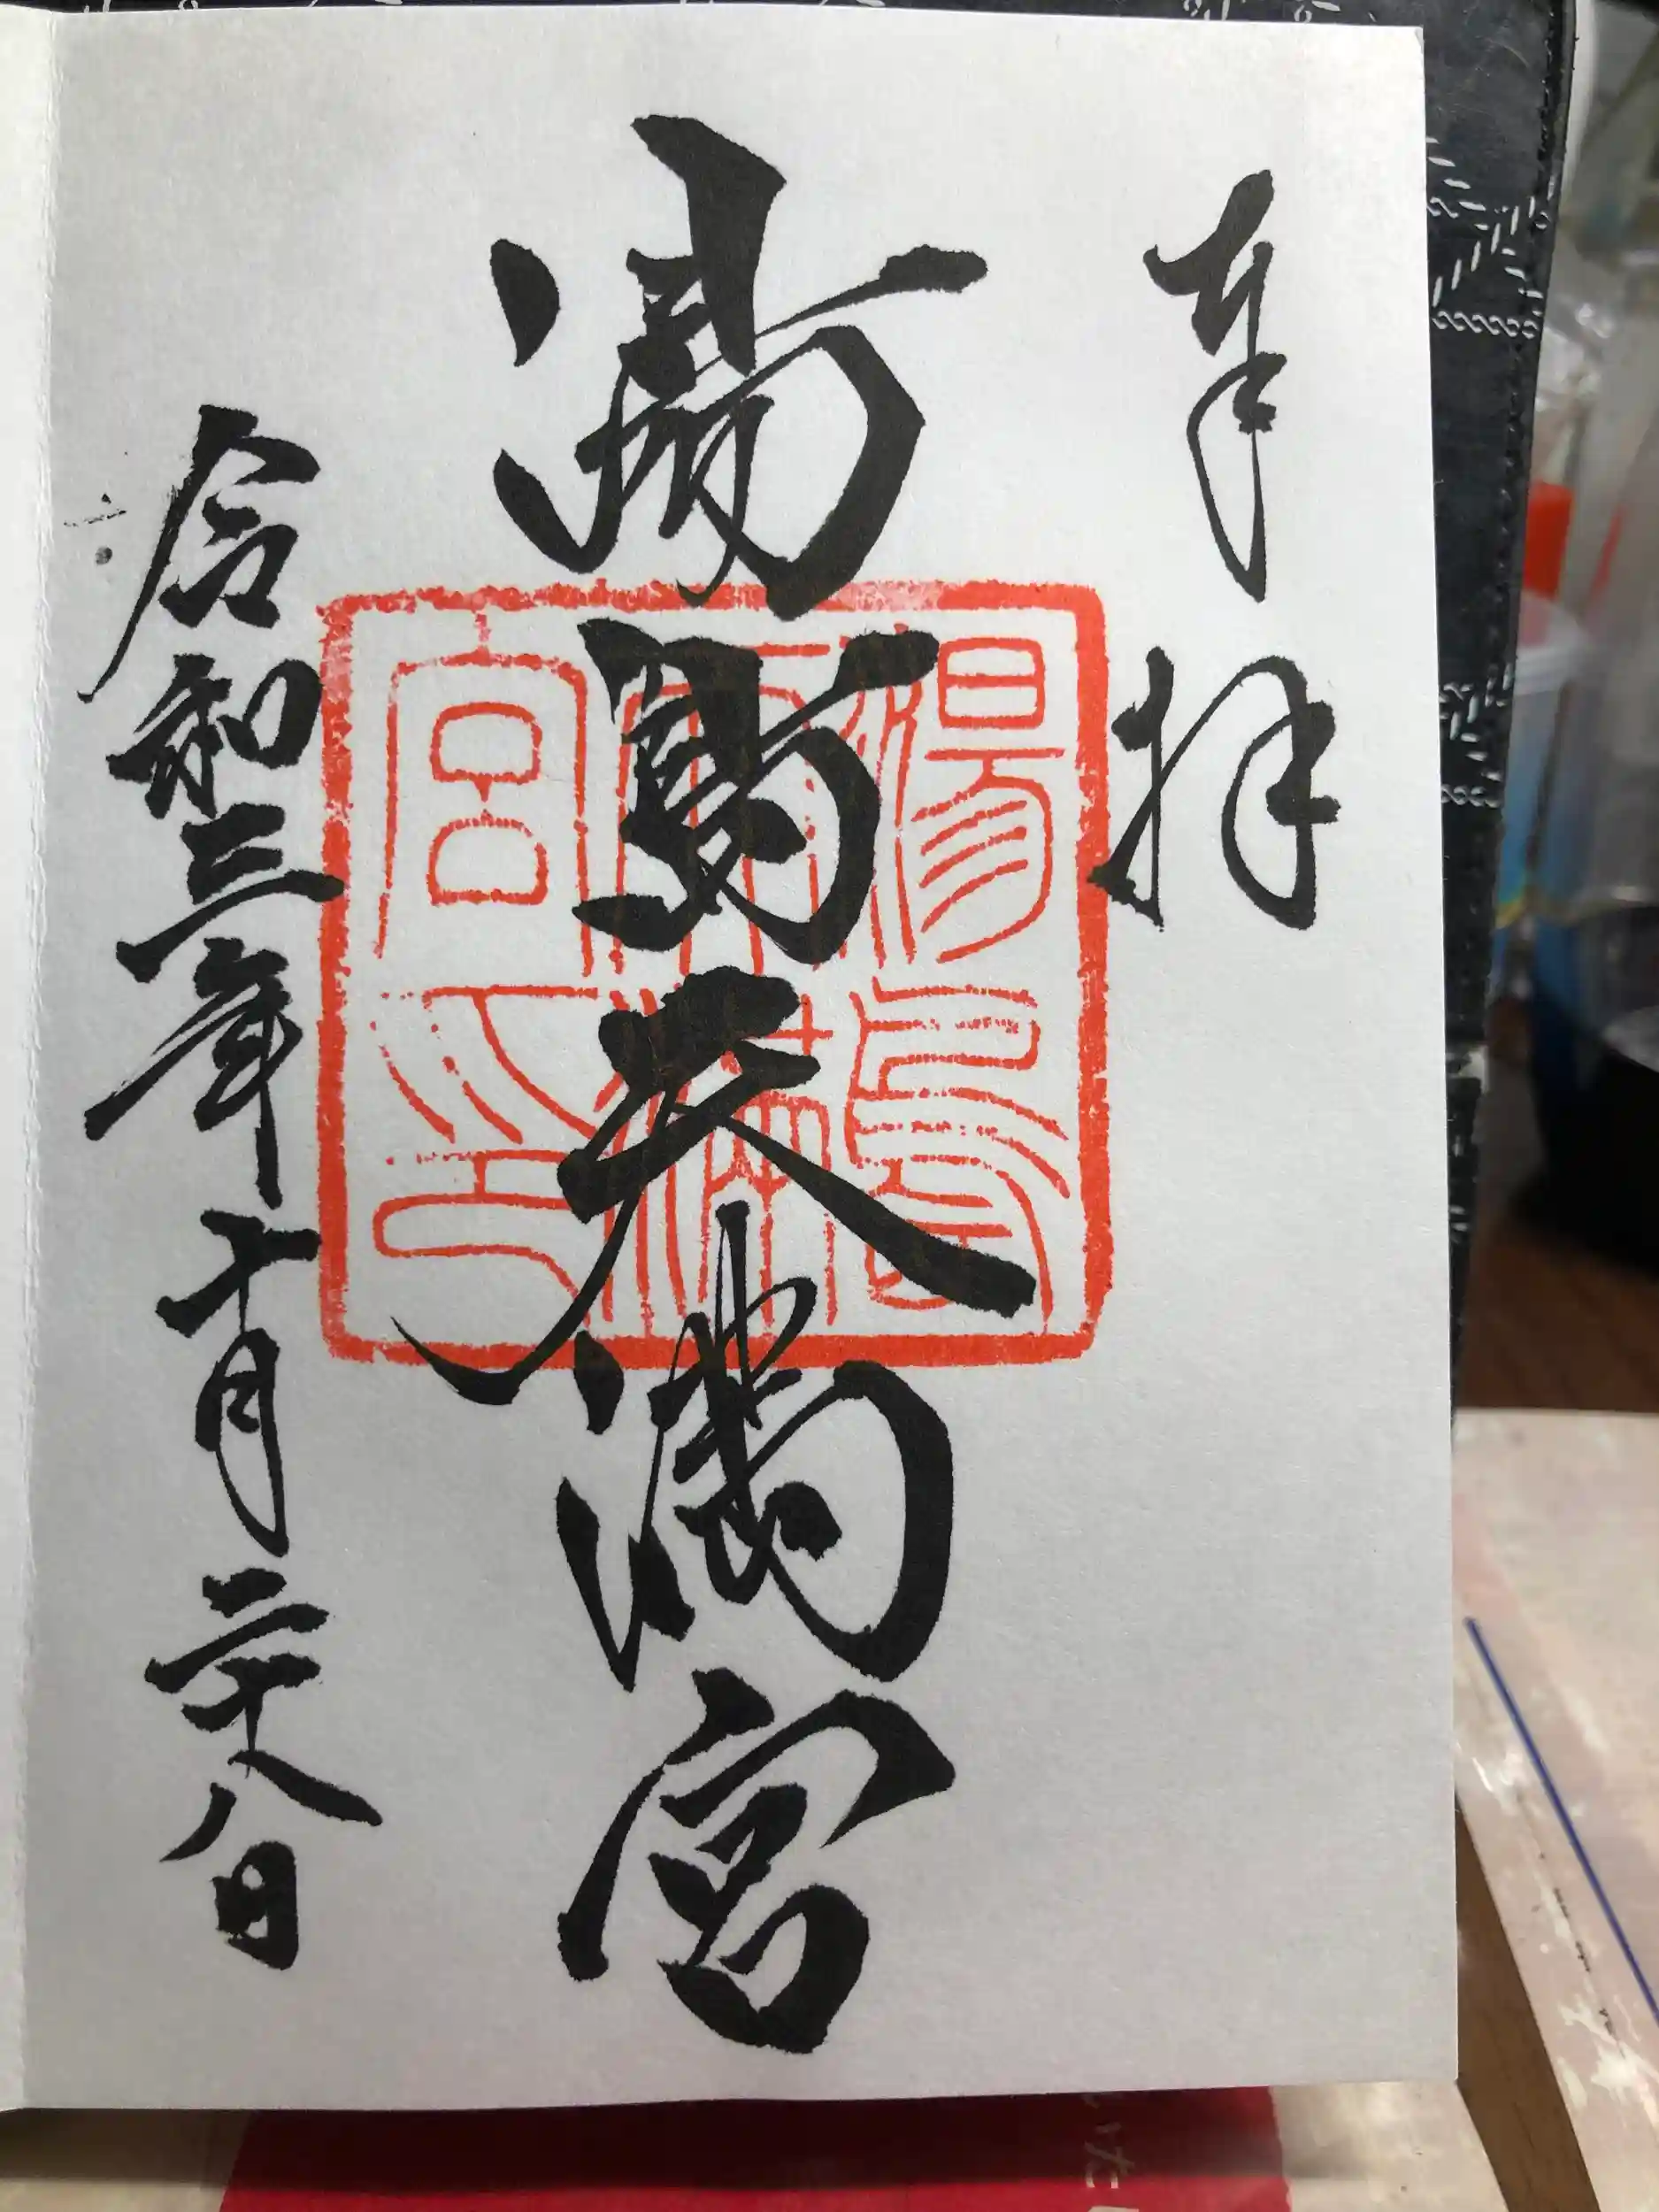 奉拝
湯島天満宮
令和三年十月二十八日
湯島
天満
宮印